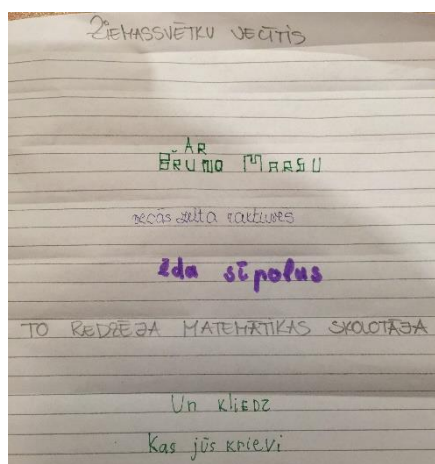 ZIEMASSVĒTKU VECĪTIS
AR
BRUNO MARSU
vecās zelta raktuves
ēda sīpolus
TO REDZĒJA MATEMĀTIKAS SKOLOTĀJA
Un kliedz
Kas jūs krievi